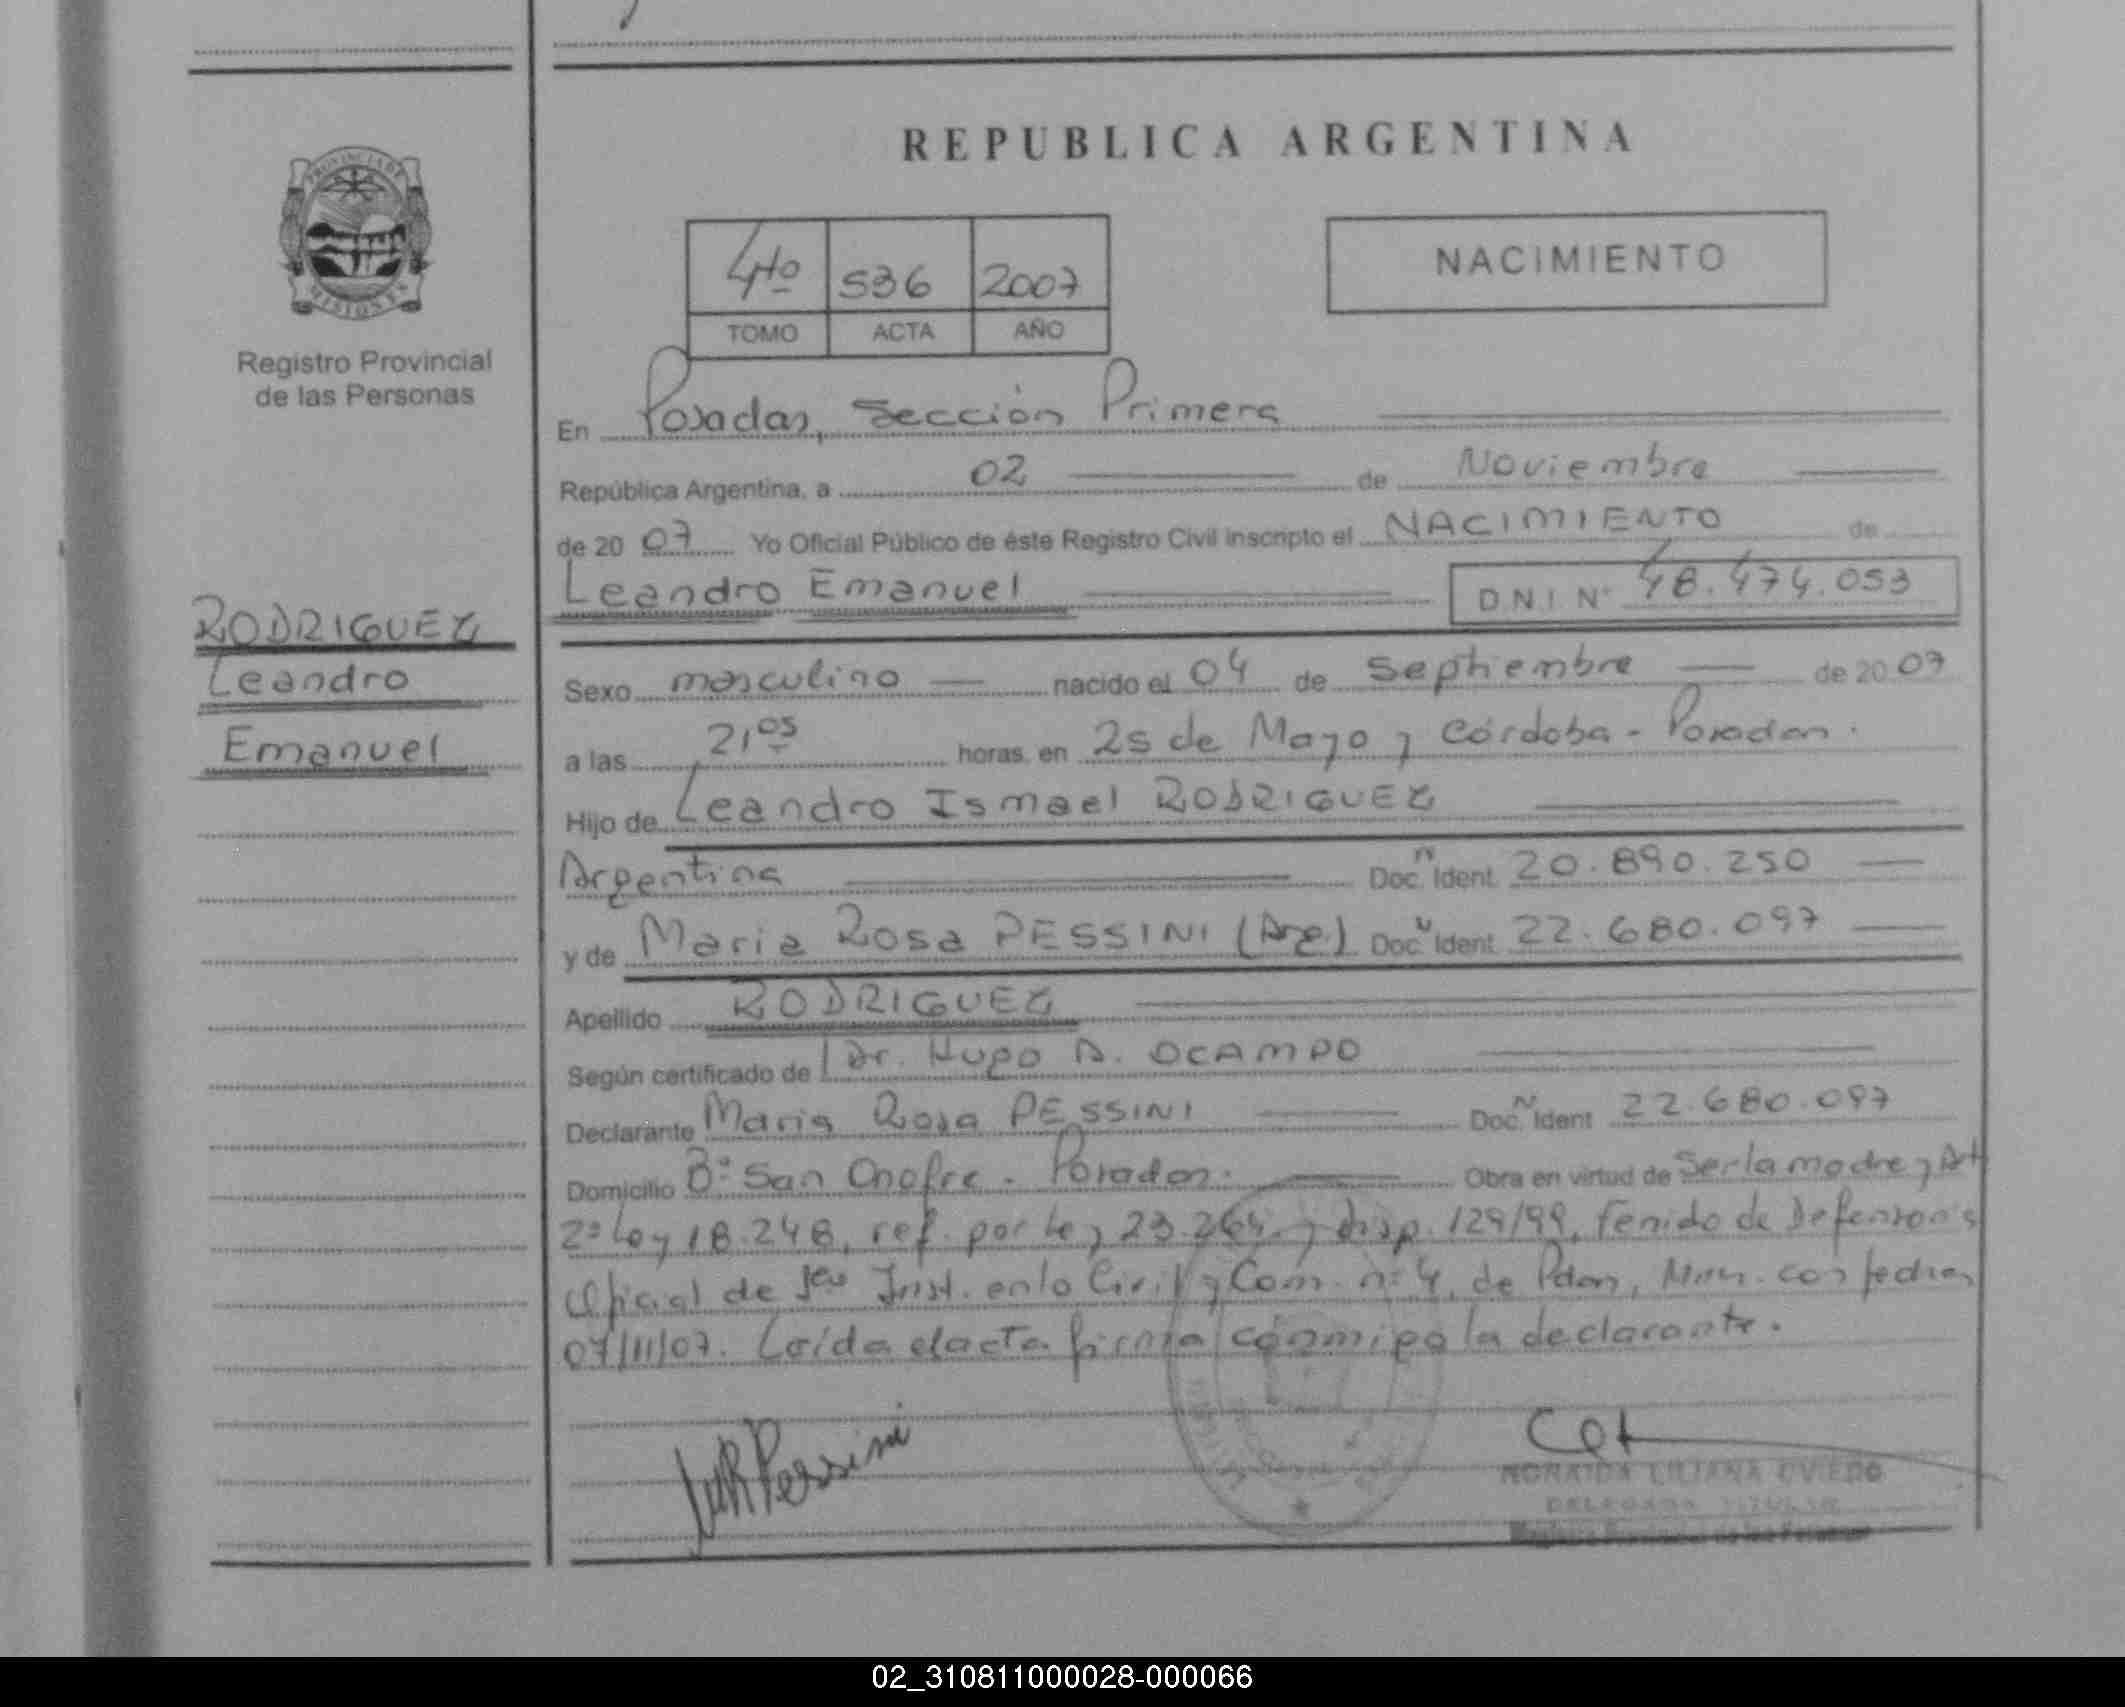 REPUBLICA ARGENTINA
PROVINCIA DE
MISIONES
Registro Provincial
de las Personas
4to 536 2007
TOMO ACTA AÑO
NACIMIENTO
En Posadas, Sección Primera
República Argentina, a 02 de Noviembre
de 20 07 Yo Oficial Público de éste Registro Civil inscripto el NACIMIENTO de
Leandro Emanuel DNI Nº 48.474.053
RODRIGUEZ
Leandro
Emanuel
Sexo masculino nacido el 04 de Septiembre de 20 07
a las 21 05 horas, en 25 de Mayo y Córdoba - Posadas.
Hijo de Leandro Ismael RODRIGUEZ
Argentina Doc. N Ident. 20.890.250
y de Maria Rosa PESSINI (Arg.) Doc. N Ident. 22.680.097
Apellido RODRIGUEZ
Según certificado de Dr. Hugo A. OCAMPO
Declarante Maria Rosa PESSINI Doc. N Ident 22.680.097
Domicilio Bº San Onofre - Posadas. Obra en virtud de Ser la madre y Art
2º Ley 18.248, ref. por Ley 23.264 y disp. 129/99, venido de Defensoria
Oficial de 1era Inst. en lo Civil y Com. nº 4, de Pdas, Mnes. con fecha
07/11/07. Leída el acta firma conmigo la declarante.
MRPessini
NORAIDA LILIANA OVIEDO
DELEGADA TITULAR
Registro Provincial de las Personas
02_310811000028-000066